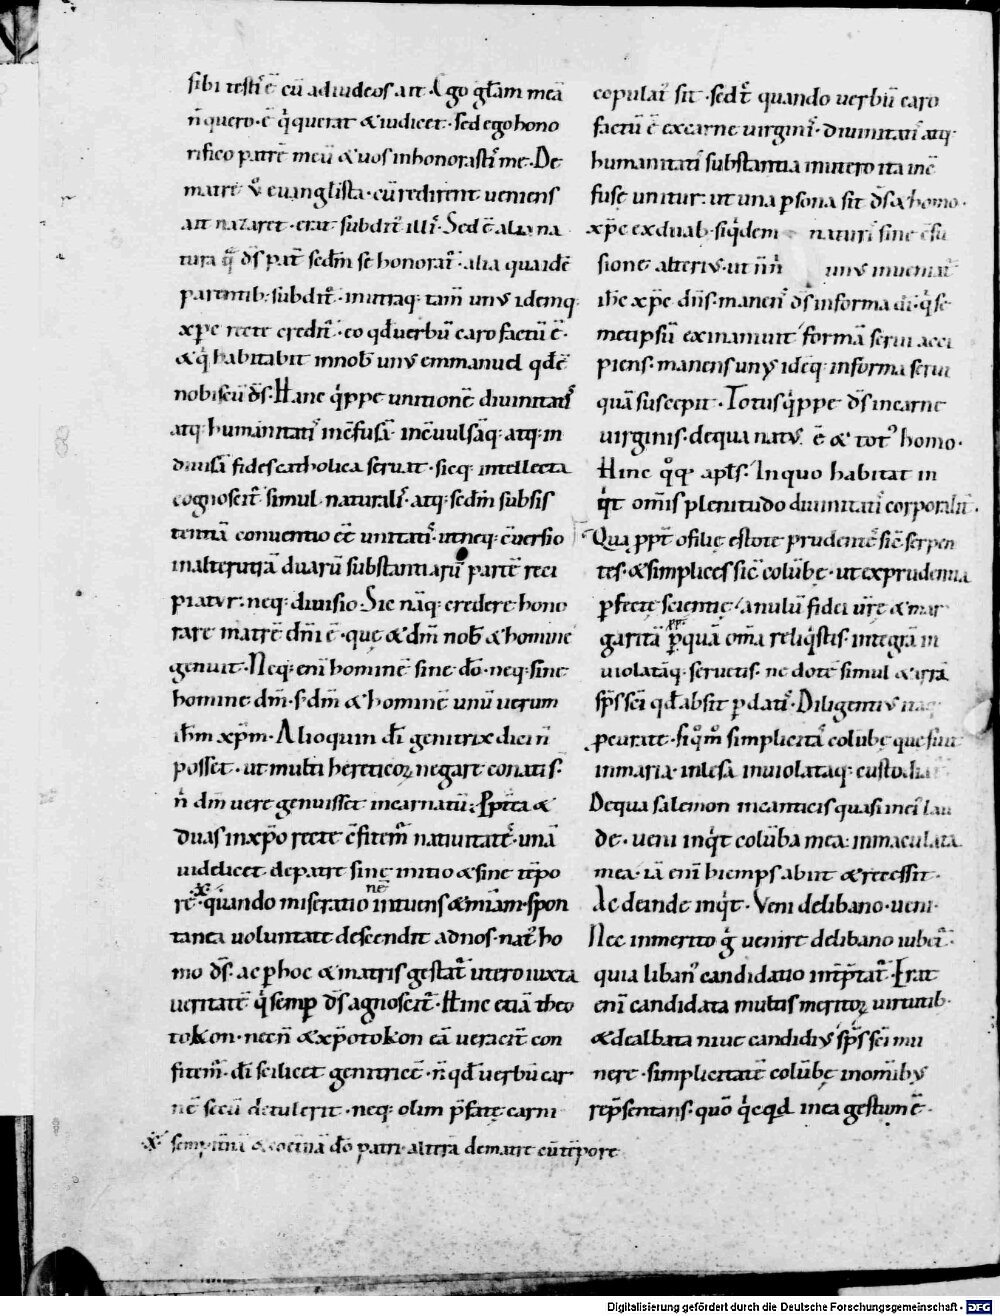 sibi testiˢ ē cū ad iudeos ait. Ego gl̄am meā
n̄ quero. ē q̇ querat & iudicet. sed ego hono
rifico patrē meū & uos inhonorastiˢ me. De
matre ů euanglista. cū redirent ueniens
ait nazaret. erat subditˢ illiˢ. Sed ē alia na
tura q̄ d̄s pat̄ sedm̄ se honorat̄. alia qua idē
parentib; subditˢ. in utraq; tam̄ unꝰ idemq;
xp̄c recte creditˢ. eo qd̄ uerbū caro factū ē.
& q̇ habitabit in nob̄ unꝰ emmanuel qd̄ ē
nobiscū d̄s. Hanc q̇ppe unitionē diuinitatiˢ
atq; humanitatiˢ incfusā inc̄uulsāq; atq; in
diuisā fides catholica seruat. sicq; intellecta
cognoscit̄ simul naturaliˢ atq; sedm̄ subsis
tentiā conuentio ēt unitatiˢ. ut neq; c̄uersio
in alterutrā duarū substantiarū partē reci
piatur. neq; diuisio. Sic nāq; credere hono
rare matrē dn̄i ē. quę & dm̄ nob̄ & hominē
genuit. Neq; eni hominē sine do. neq; sine
homine dm̄. s; dm̄ & hominē unū uerum
ih̄m xp̄m. Alioquin di genitrix dici n̄
posset. ut multi hereticoꝝ negare conati sˢ
n̄ dm̄ uere genuisset incarnatū. Ppt̄ea &
duas in xp̄o recte c̄fitem̄ natiuitateˢ. unā
uidelicet de patre sine initio & sine tēpo
re. quando miseratio nē intuens & miām. spon
tanea uoluntate descendit ad nos. natˢ ho
mo d̄s. ac p hoc & matris gestat̄ utero iuxta
ueritatē q̇ semp d̄s agnoscit̄. Hinc etiā theo
tokon. necn̄ & xp̄otokon eā ueracit̄ con
fitem̄. di scilicet genitricē. n̄ qd̄ uerbū car
nē secū detulerit. neq; olim p̄fatę carni
sempit̄nā & coet̄nā do patri alterā de matre cū tēpore
copulatˢ sit. sed t̄ quando uerbū caro
factū ē ex carne uirginiˢ. diuinitatiˢ atq;
humanitatiˢ substantia in utero ita inc̄
fuse unitur. ut una psona sit d̄s & homo.
xp̄c ex duab; siq̇dem naturiˢ sine c̄fu
sione alteriꝰ. ut n̄n̄ unꝰ inueniat̄
ih̄c xp̄c dn̄s. manenˢ d̄s in forma di. q̇ se
metipsū exinaniuit formā serui acci
piens. manens unꝰ idēq; in forma serui
quā suscepit. Totus q̇ppe d̄s in carne
uirginis. de qua natꝰ ē & totˢ homo.
Hinc q̊q; apl̄s. In quo habitat in
q̇t om̄is plenitudo diuinitatiˢ corporalit̄.
Qua ppt̄ o filię estote prudenteˢ sic̄ serpen
tes. & simplices sic̄ colūbę. ut ex prudentia
pfectę scientię anulū fidei ur̄e & mar
garitā p quā om̄a reliq̇stis. integrā in
uiolatāq; seruetis. ne dotē simul & arrā
sp̄s sc̄i qd̄ absit pdatiˢ. Diligentiꝰ
pcurate. siq̊m̊ simplicitaˢ colūbę que fuit
in maria inlesa inuiolataq; custodiat̄
De qua salemon in canticis quasi in ei lau
de. ueni inq̇t colūba mea: inmaculata
mea. iā eni hiemps abiit & recessit.
Ac deinde inq̇t. Veni de libano. ueni.
Nec inmerito ġ uenire de libano iubet̄.
quia libanˢ candidatio int̄p̄tat̄. Erat
eni candidata multis meritoꝝ uirtutib;
& dealbata niue candidiꝰ sp̄s sc̄i mu
nere. simplicitatē colūbę in om̄ibꝰ
rep̄sentans. quo q̇cqd in ea gestum ē.
Digitalisierung gefördert durch die Deutsche Forschungsgemeinschaft - DFG